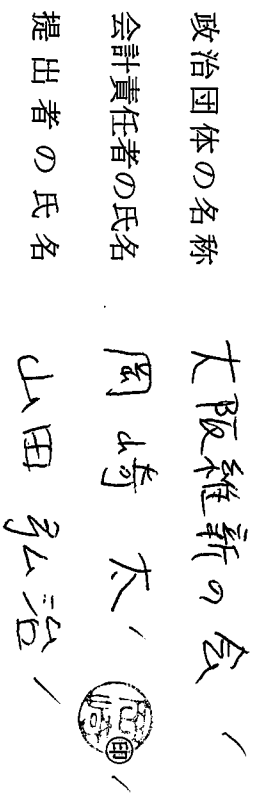 政治団体の名称 大阪維新の会
会計責任者の氏名 岡崎 太
提出者の氏名 山田 弘治
印